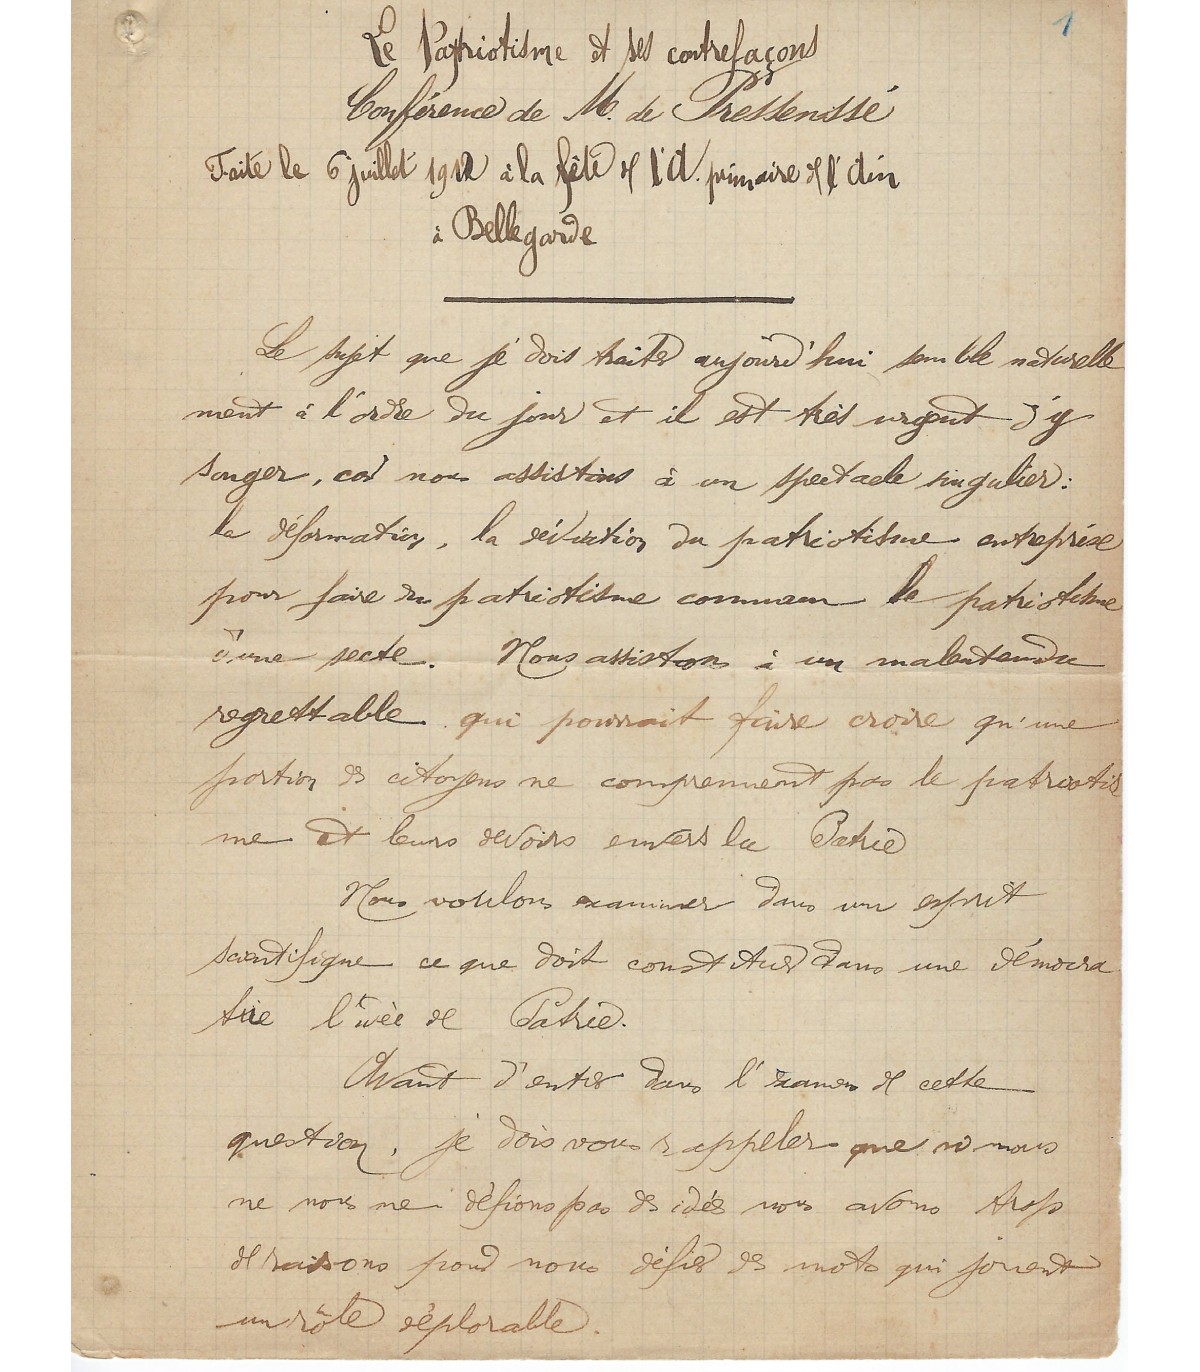 1
Le Patriotisme et ses contrefaçons
Conférence de M. de Pressenssé
Faite le 6 juillet 1912 à la fête de l'A. primaire de l'Ain
à Bellegarde
Le sujet que je dois traiter aujourd'hui semble naturelle
ment à l'ordre du jour et il est très urgent d'y
songer, car nous assistons à un spectacle singulier :
la déformation, la déviation du patriotisme entreprise
pour faire du patriotisme commun le patriotisme
d'une secte. Nous assistons à un malentendu
regrettable qui pourrait faire croire qu'une
portion de citoyens ne comprennent pas le patriotis
me et leurs devoirs envers la Patrie
Nous voulons examiner dans un esprit
scientifique ce que doit constituer dans une démocra
tie l'idée de Patrie.
Avant d'entrer dans l'examen de cette
question, je dois vous rappeler que si nous
ne nous me défions pas des idées nous avons trop
de raisons pour nous défier des mots qui jouent
un rôle déplorable.